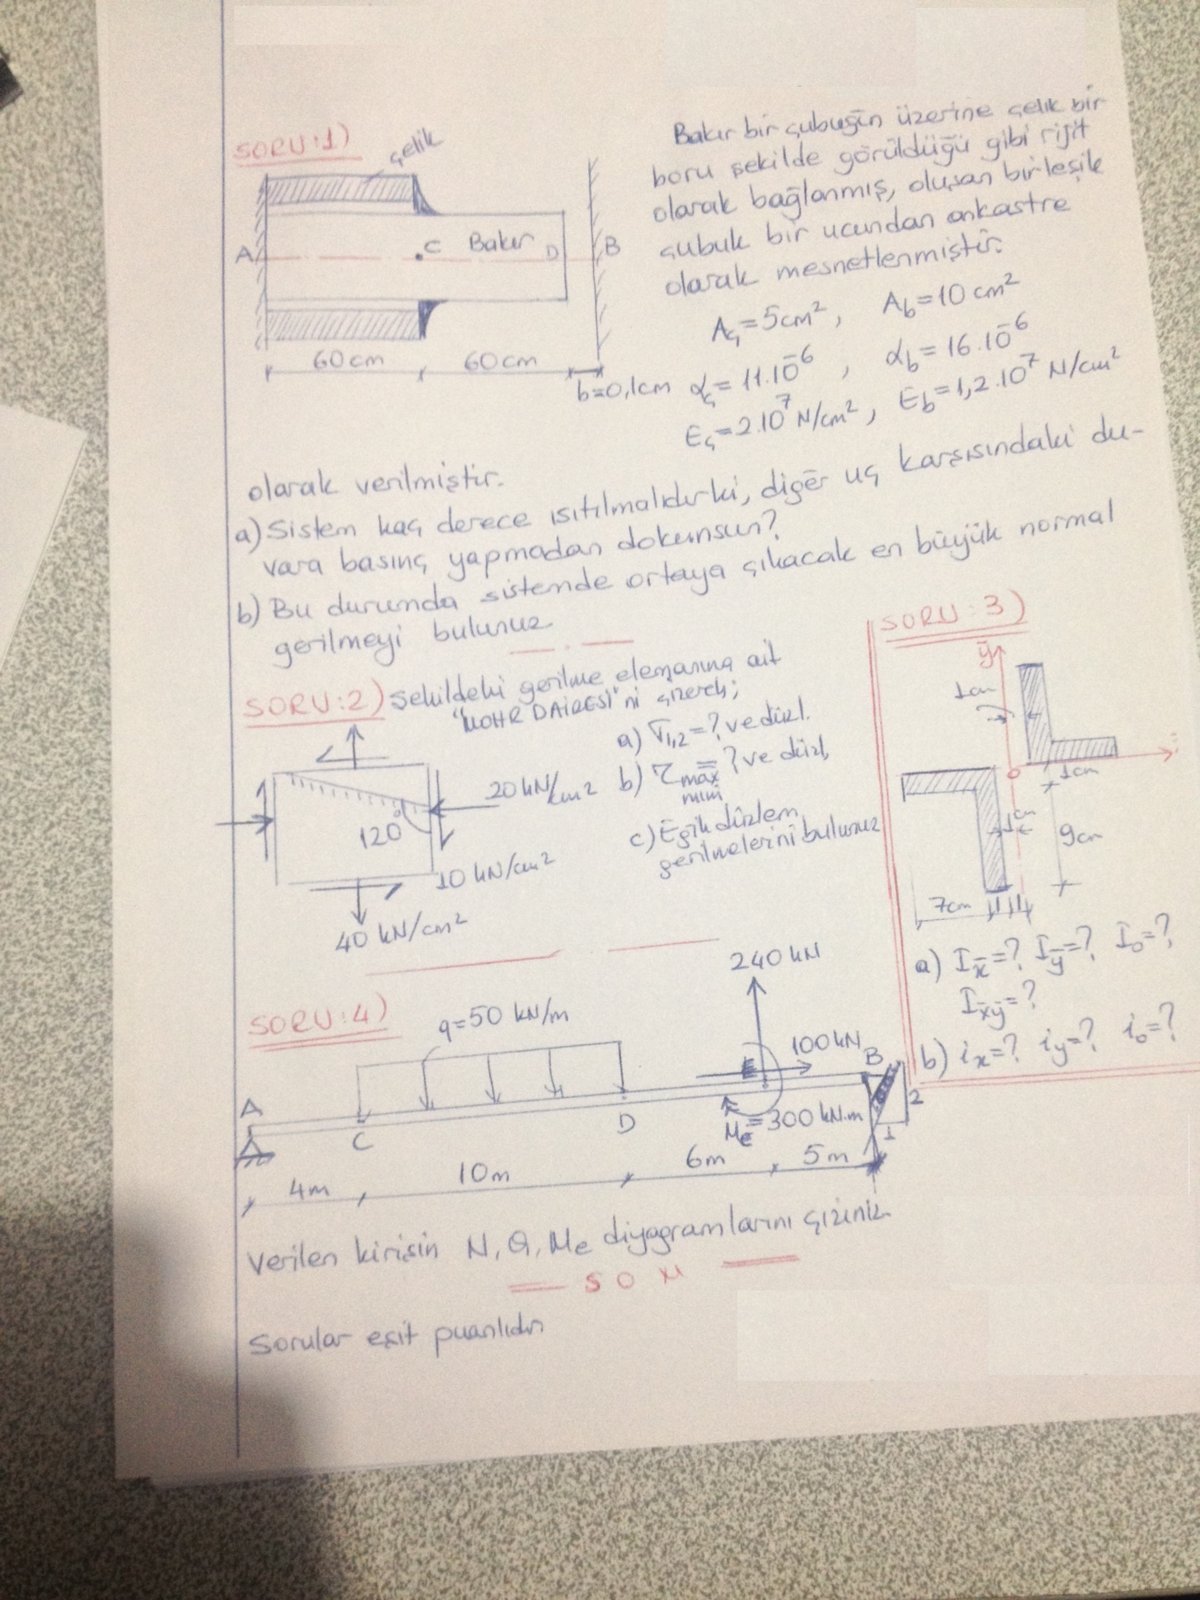 SORU:1)
çelik
A
C
Bakır
D
B
60 cm
60 cm
b=0,1cm
Bakır bir çubuğun üzerine çelik bir
boru şekilde görüldüğü gibi rijit
olarak bağlanmış, oluşan birleşik
çubuk bir ucundan ankastre
olarak mesnetlenmiştir.
Aç=5cm², Ab=10 cm²
αç=11.10⁻⁶, αb=16.10⁻⁶
Eç=2.10⁷ N/cm², Eb=1,2.10⁷ N/cm²
olarak verilmiştir.
a) Sistem kaç derece ısıtılmalıdırki, diğer uç karşısındaki du-
vara basınç yapmadan dokunsun?
b) Bu durumda sistemde ortaya çıkacak en büyük normal
gerilmeyi bulunuz
SORU:2) Şekildeki gerilme elemanına ait
"MOHR DAİRESİ"ni çizerek;
a) σ1,2=? ve düzl.
b) τmax=? ve düzl,
min
c) Eğik düzlem
gerilmelerini bulunuz
120°
20 kN/cm²
10 kN/cm²
40 kN/cm²
SORU:3)
ȳ
1cm
0
1cm
1cm
9cm
7cm
a) Ix̄=? Iȳ=? I0=?
Ix̄ȳ=?
b) ix=? iy=? i0=?
SORU:4)
q=50 kN/m
240 kN
100 kN
A
C
D
E
B
Me=300 kN.m
2
1
4m
10m
6m
5m
Verilen kirişin N, Q, Me diyagramlarını çiziniz
SON
Sorular eşit puanlıdır